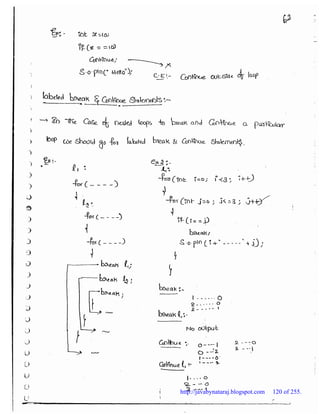 62
Ex:- int x=10;
if(x == 10)
Continue;
S.o.pln("Hello");
C.E:- Continue outside of loop
labeled break & Continue Statements:-
→ In the Case of nested loops to break and Continue a particular
loop we should go for labeled break & Continue Statements.
Ex:-
l1 :
for( - - - - )
{
l2 :
for( - - - - )
{
for( - - - - )
{
break l1;
break l2;
break;
}
}
}
ex 2:-
l1:
for(int i=0; i<3; i++)
{
for(int j=0; j<3; j++)
{
if(i==j)
break;
S.o.pln(i+"-----"+j);
}
}
break:-
1 ------ 0
2 ------ 0
2 ------ 1
break l1:-
No output
Continue :- 0 ----1
0 ---2
1 ----0
1 ---2
2 ---0
2 ---1
Continue l1 :-
1 ---- 0
2 -- -- 0
2 ---- 1
http://javabynataraj.blogspot.com 120 of 255.